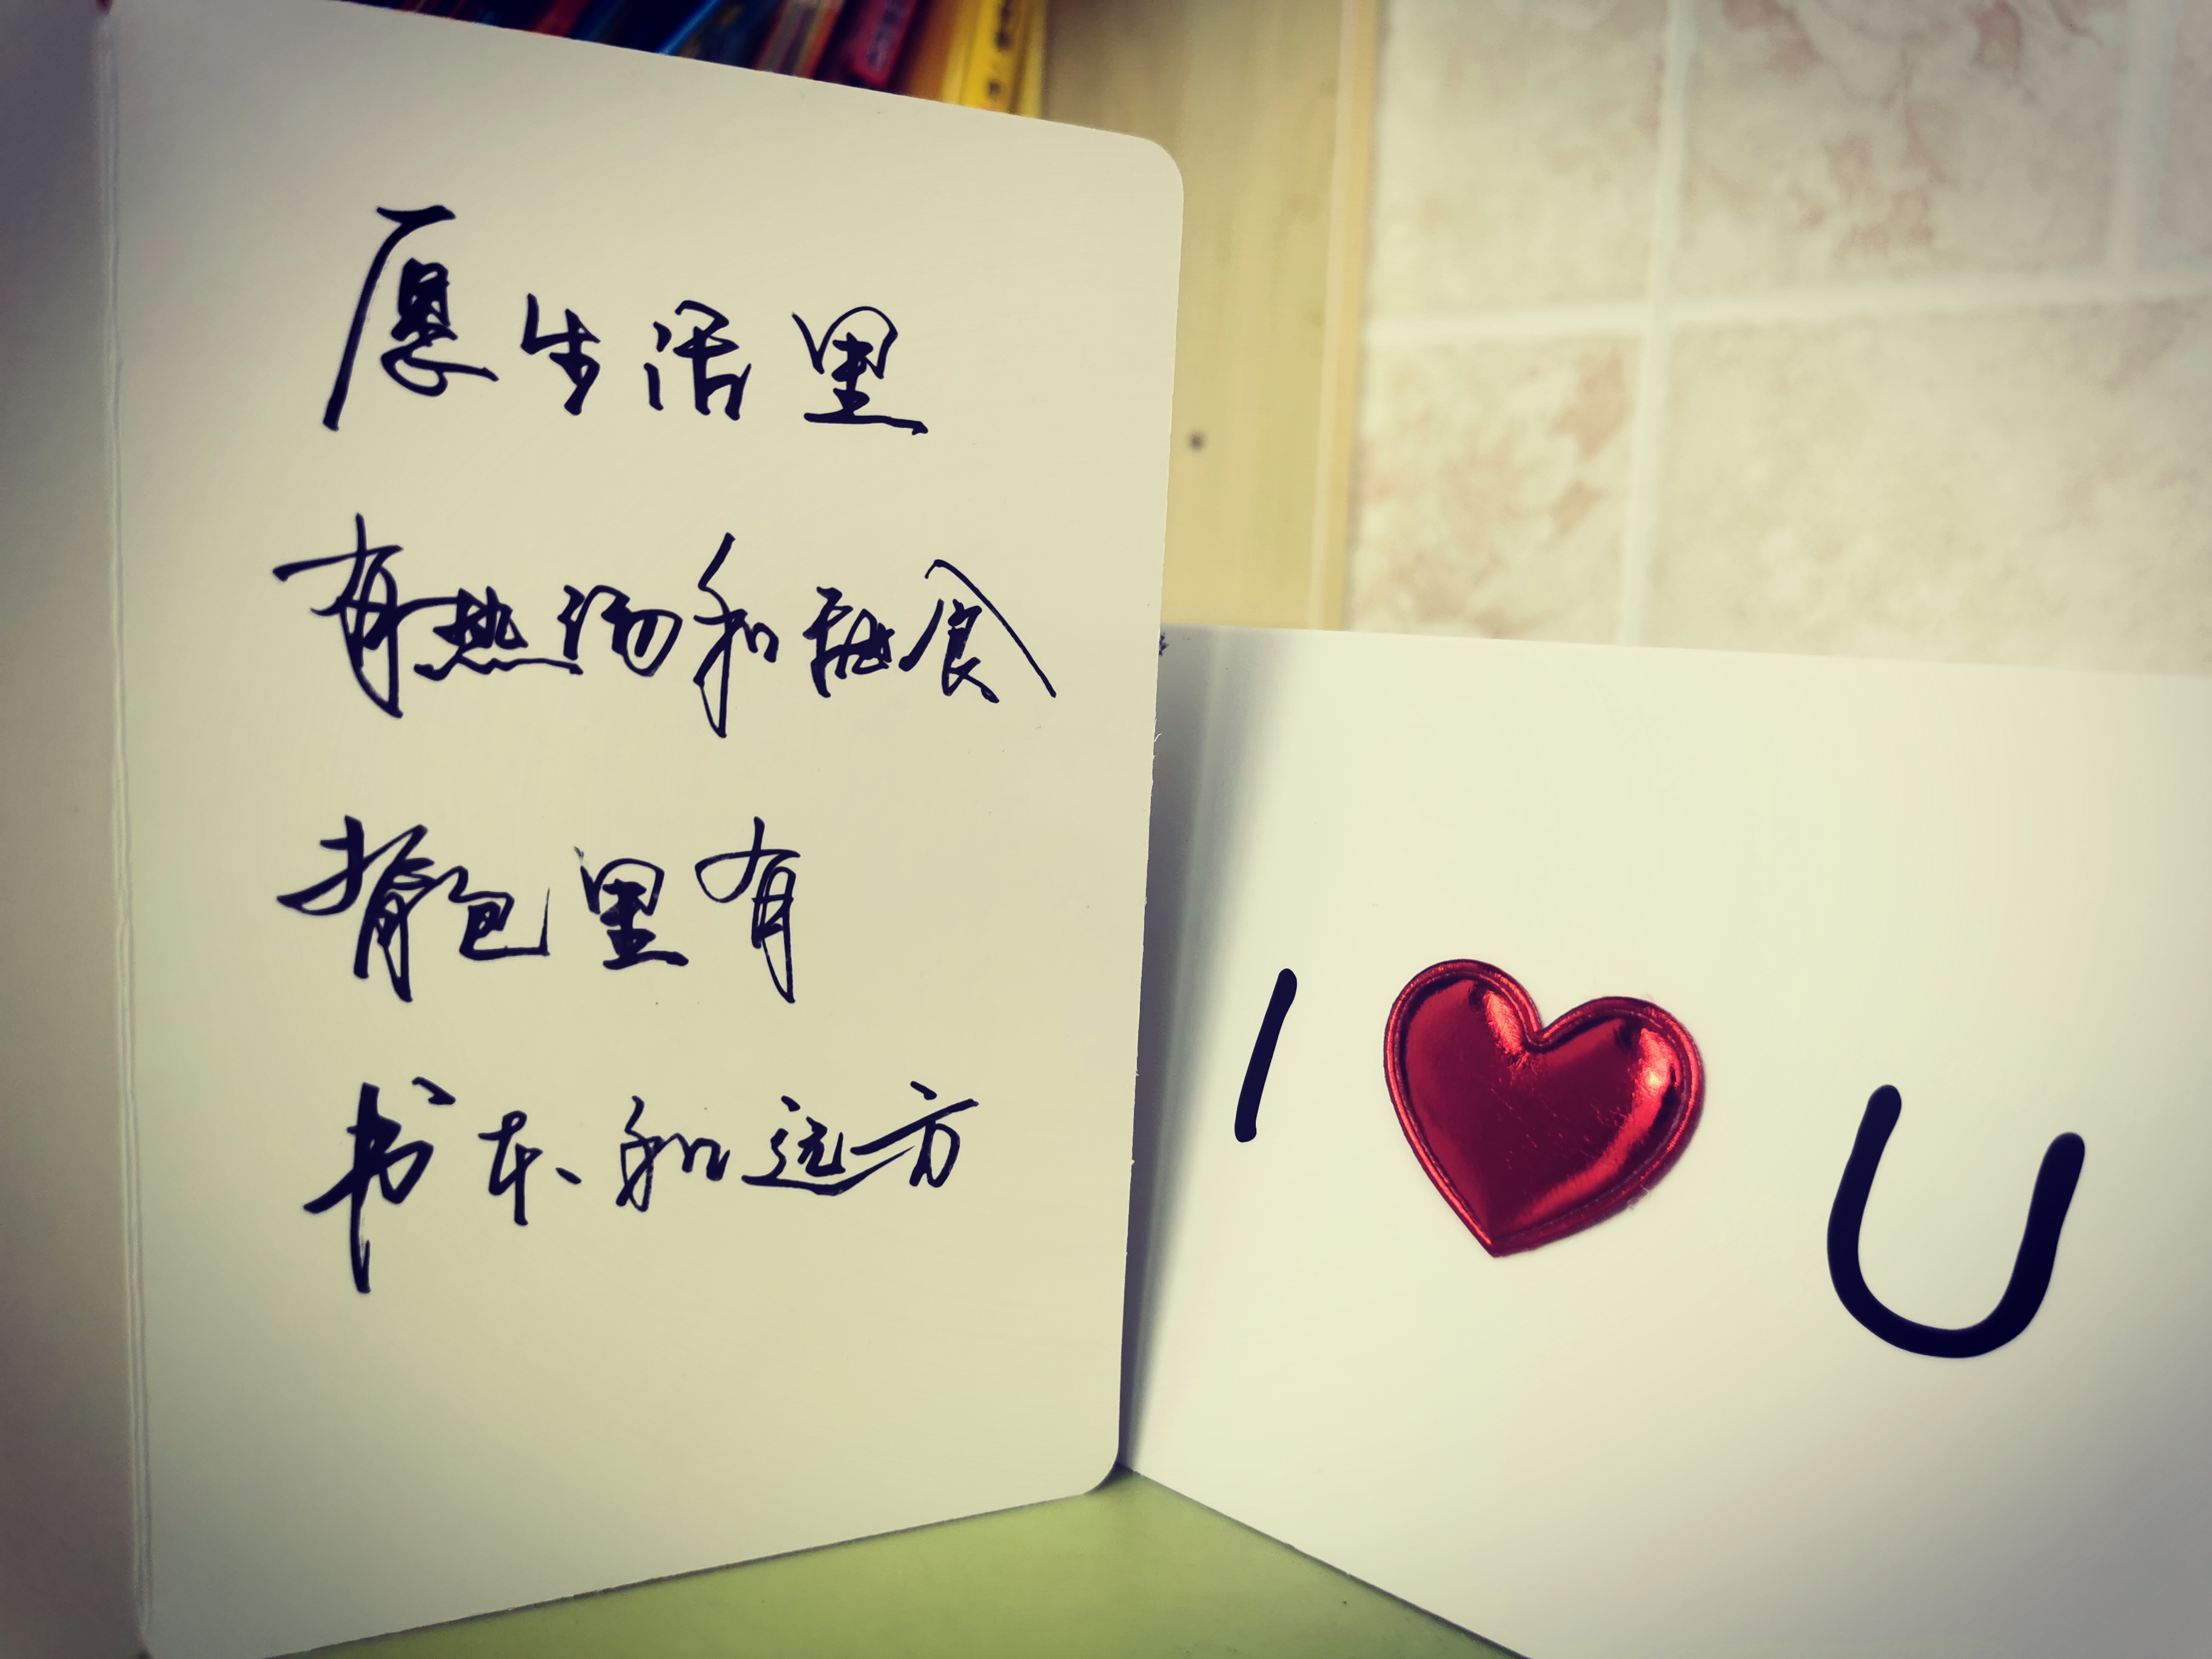 愿生活里
有热汤和甜食
揹包里有
书本和远方
I ❤ U